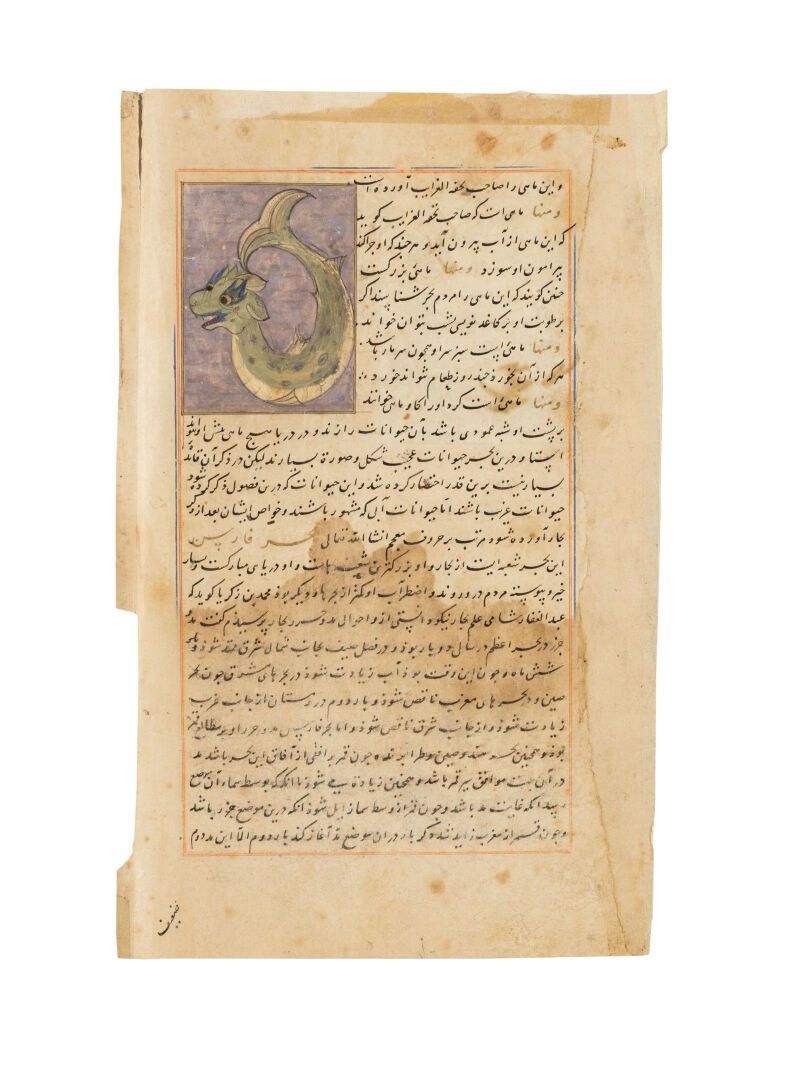 و این ماهی را صاحب تحفه الغرایب آورده است
ومنها ماهی است که صاحب تحفه الغرایب گوید
که این ماهی از آب بیرون آید و هر چند که او حرکت
پیرامون او سوزد ومنها ماهی بزرگست
چنین گویند که این ماهی را مردم بحر شناسند اگر
برطوبت او بر کاغذ نویسی بشب بتوان خواند
ومنها ماهی ایست سبز سر او همچون سر مار باشد
هر که از آن بخورد چند روز طعام نتواند خورد
ومنها ماهی است گرد او را گاو ماهی خوانند
بر پشت او شبه عمودی باشد بآن حیوانات را زند و در دریا هیچ ماهی
و درین بحر حیوانات عجیب شکل و صورة بسیارند لیکن در ذکر آن فائدهٔ
بسیار نیست برین قدر اختصار کرده شد و این حیوانات که درین فصول ذکر کرده شود
حیوانات غریب باشند اما حیوانات آبی که مشهور باشند و خواص ایشان بعد از ذکر
بحار آورده شود مرتب بر حروف معجم انشا الله تعالی بحر فارس
این بحر شعبه ایست از بحار و او بزرگترین شعبهاست و او دریای مبارکست و بسیار
خیر و پیوسته مردم درو روند و اضطرآب او کمتر از بحرهاء دیگر بود محمد بن زکریا گوید که
عبد الغفار شامی علم بحار نیکو دانستی از و احوال مد و جزر بحار پرسیدم گفت مد و
جزر در بحر اعظم در سالی دو بار بود در فصل صیف بجانب شمالی شرق ممتد شود
شش ماه و چون این وقت بود آب زیادت شود در بحرهای مشرق چون بحر
صین و در بحرهای مغرب ناقص شود و بار دوم در زمستان از جانب غرب
زیادت شود و از جانب شرق ناقص شود و اما بحر فارس مد و جزر او بر مطالع قمر
بود و همچنین بحر هند و صین و طرابزنده چون قمر بر افقی از آفاق این بحر باشد مد
در آن جهت موافق سیر قمر باشد و همچنین زیادة می شود تا آنکه که بوسط سماء آن موضع
رسید آنکه غایت مد باشد و چون قمر از وسط سما زایل شود آنکه درین موضع جزر باشد
و چون قمر از مغرب زاید شد دگر بار در آن موضع مد آغاز کند بار دوم الا این مد دوم
ضعیف